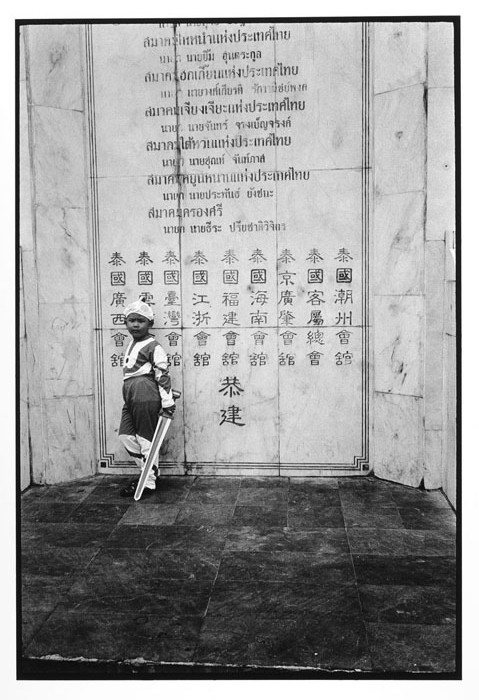 สมาคมไหหนำแห่งประเทศไทย
นายก นายยิ้ม
สมาคมฮกเกี้ยนแห่งประเทศไทย
นายก นายวงศ์เกียรติ
แห่งประเทศไทย
นายก นายจันทร์
สมาคมไต้หวันแห่งประเทศไทย
นายก นายสุณห์ จันทภาส
สมาคมหยุนหนานแห่งประเทศไทย
นายก นายประพันธ์ ยังชนะ
นายก นายธีระ
泰國潮州會館
泰國客屬總會
泰京廣肇會館
泰國海南會館
泰國福建會館
泰國江浙會館
泰國臺灣會館
泰國雲
泰國廣西會館
恭建